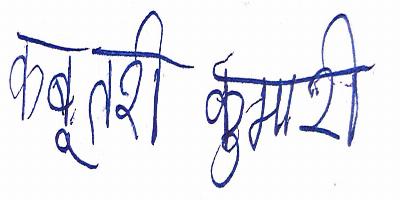 कबूतरी कुमारी